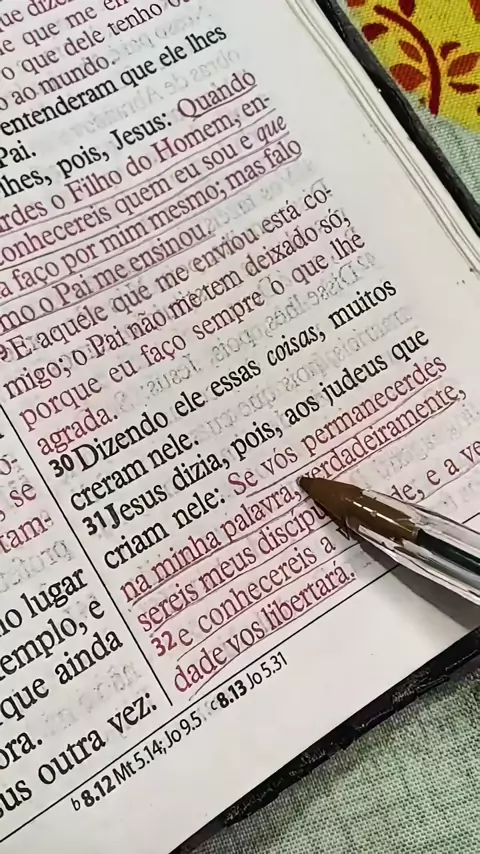 que me en
o que dele tenho
o ao mundo.
entenderam que ele lhes
Pai.
lhes, pois, Jesus: Quando
rdes o Filho do Homem, en-
onhecereis quem eu sou e que
a faço por mim mesmo; mas falo
mo o Pai me ensinou.
E aquele que me enviou está co-
migo; o Pai não me tem deixado só,
porque eu faço sempre o que lhe
agrada.
30 Dizendo ele essas coisas, muitos
creram nele.
31 Jesus dizia, pois, aos judeus que
criam nele: Se vós permanecerdes
na minha palavra, verdadeiramente,
sereis meus discípu de, e a ve
32 e conhecereis a
dade vos libertará.
se
tam-
no lugar
emplo, e
que ainda
ora.
sus outra vez:
b 8.12 Mt 5.14; Jo 9.5 c 8.13 Jo 5.31